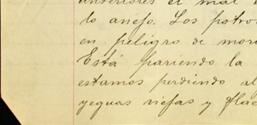 anteriores el mal
do anejo. Los potros
en peligro de mori
Está pariendo la
estamos perdiendo al
yeguas viejas y flac